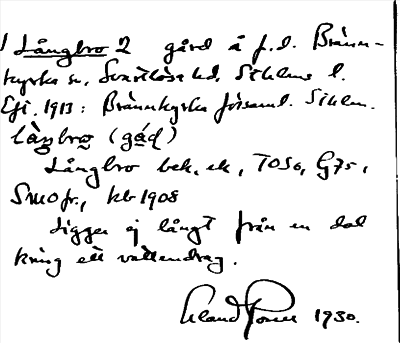 Långbro 2 gård å f.d. Bränn-
kyrka sn, Svartlösa hd, Sthlms l.
Eft. 1913: Brännkyrka församl. Sthlm.
làŋbro (gáḍ)
Långbro bek. ek, TOSo, G75,
SMO fr., kb 1908
Ligger ej långt från en dal
kring ett vattendrag.
1930.